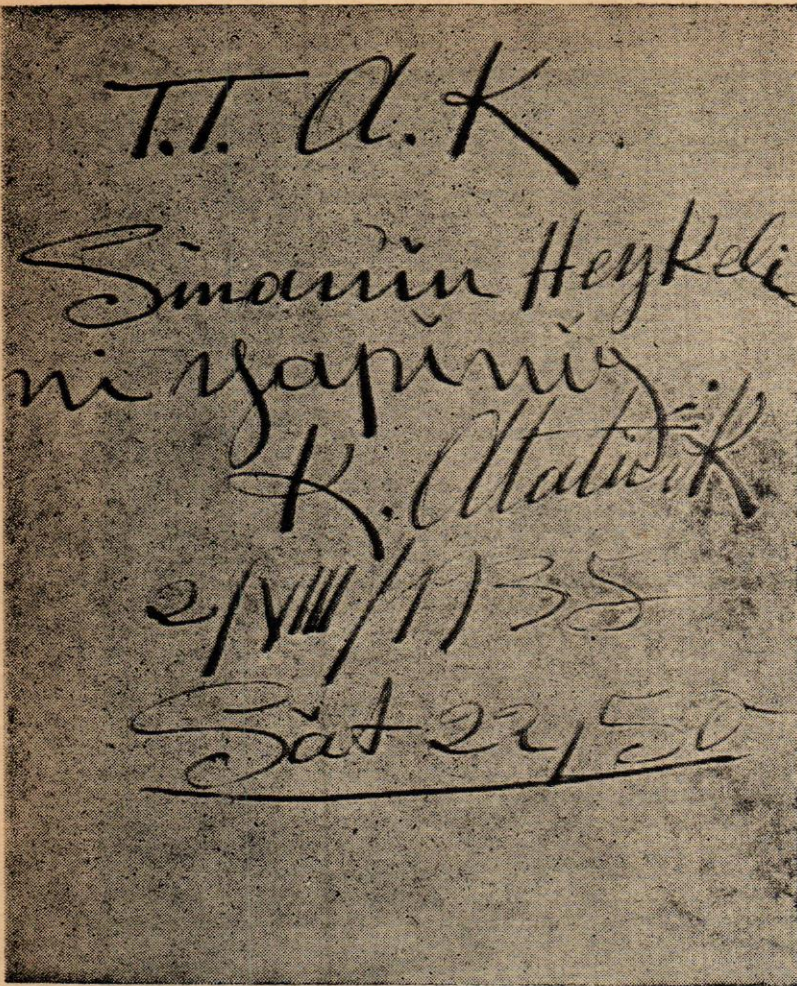 T.T. A. K.
Sinanın Heykeli
ni yapınız
K. Atatürk
2/VIII/1935
Săat 22,50